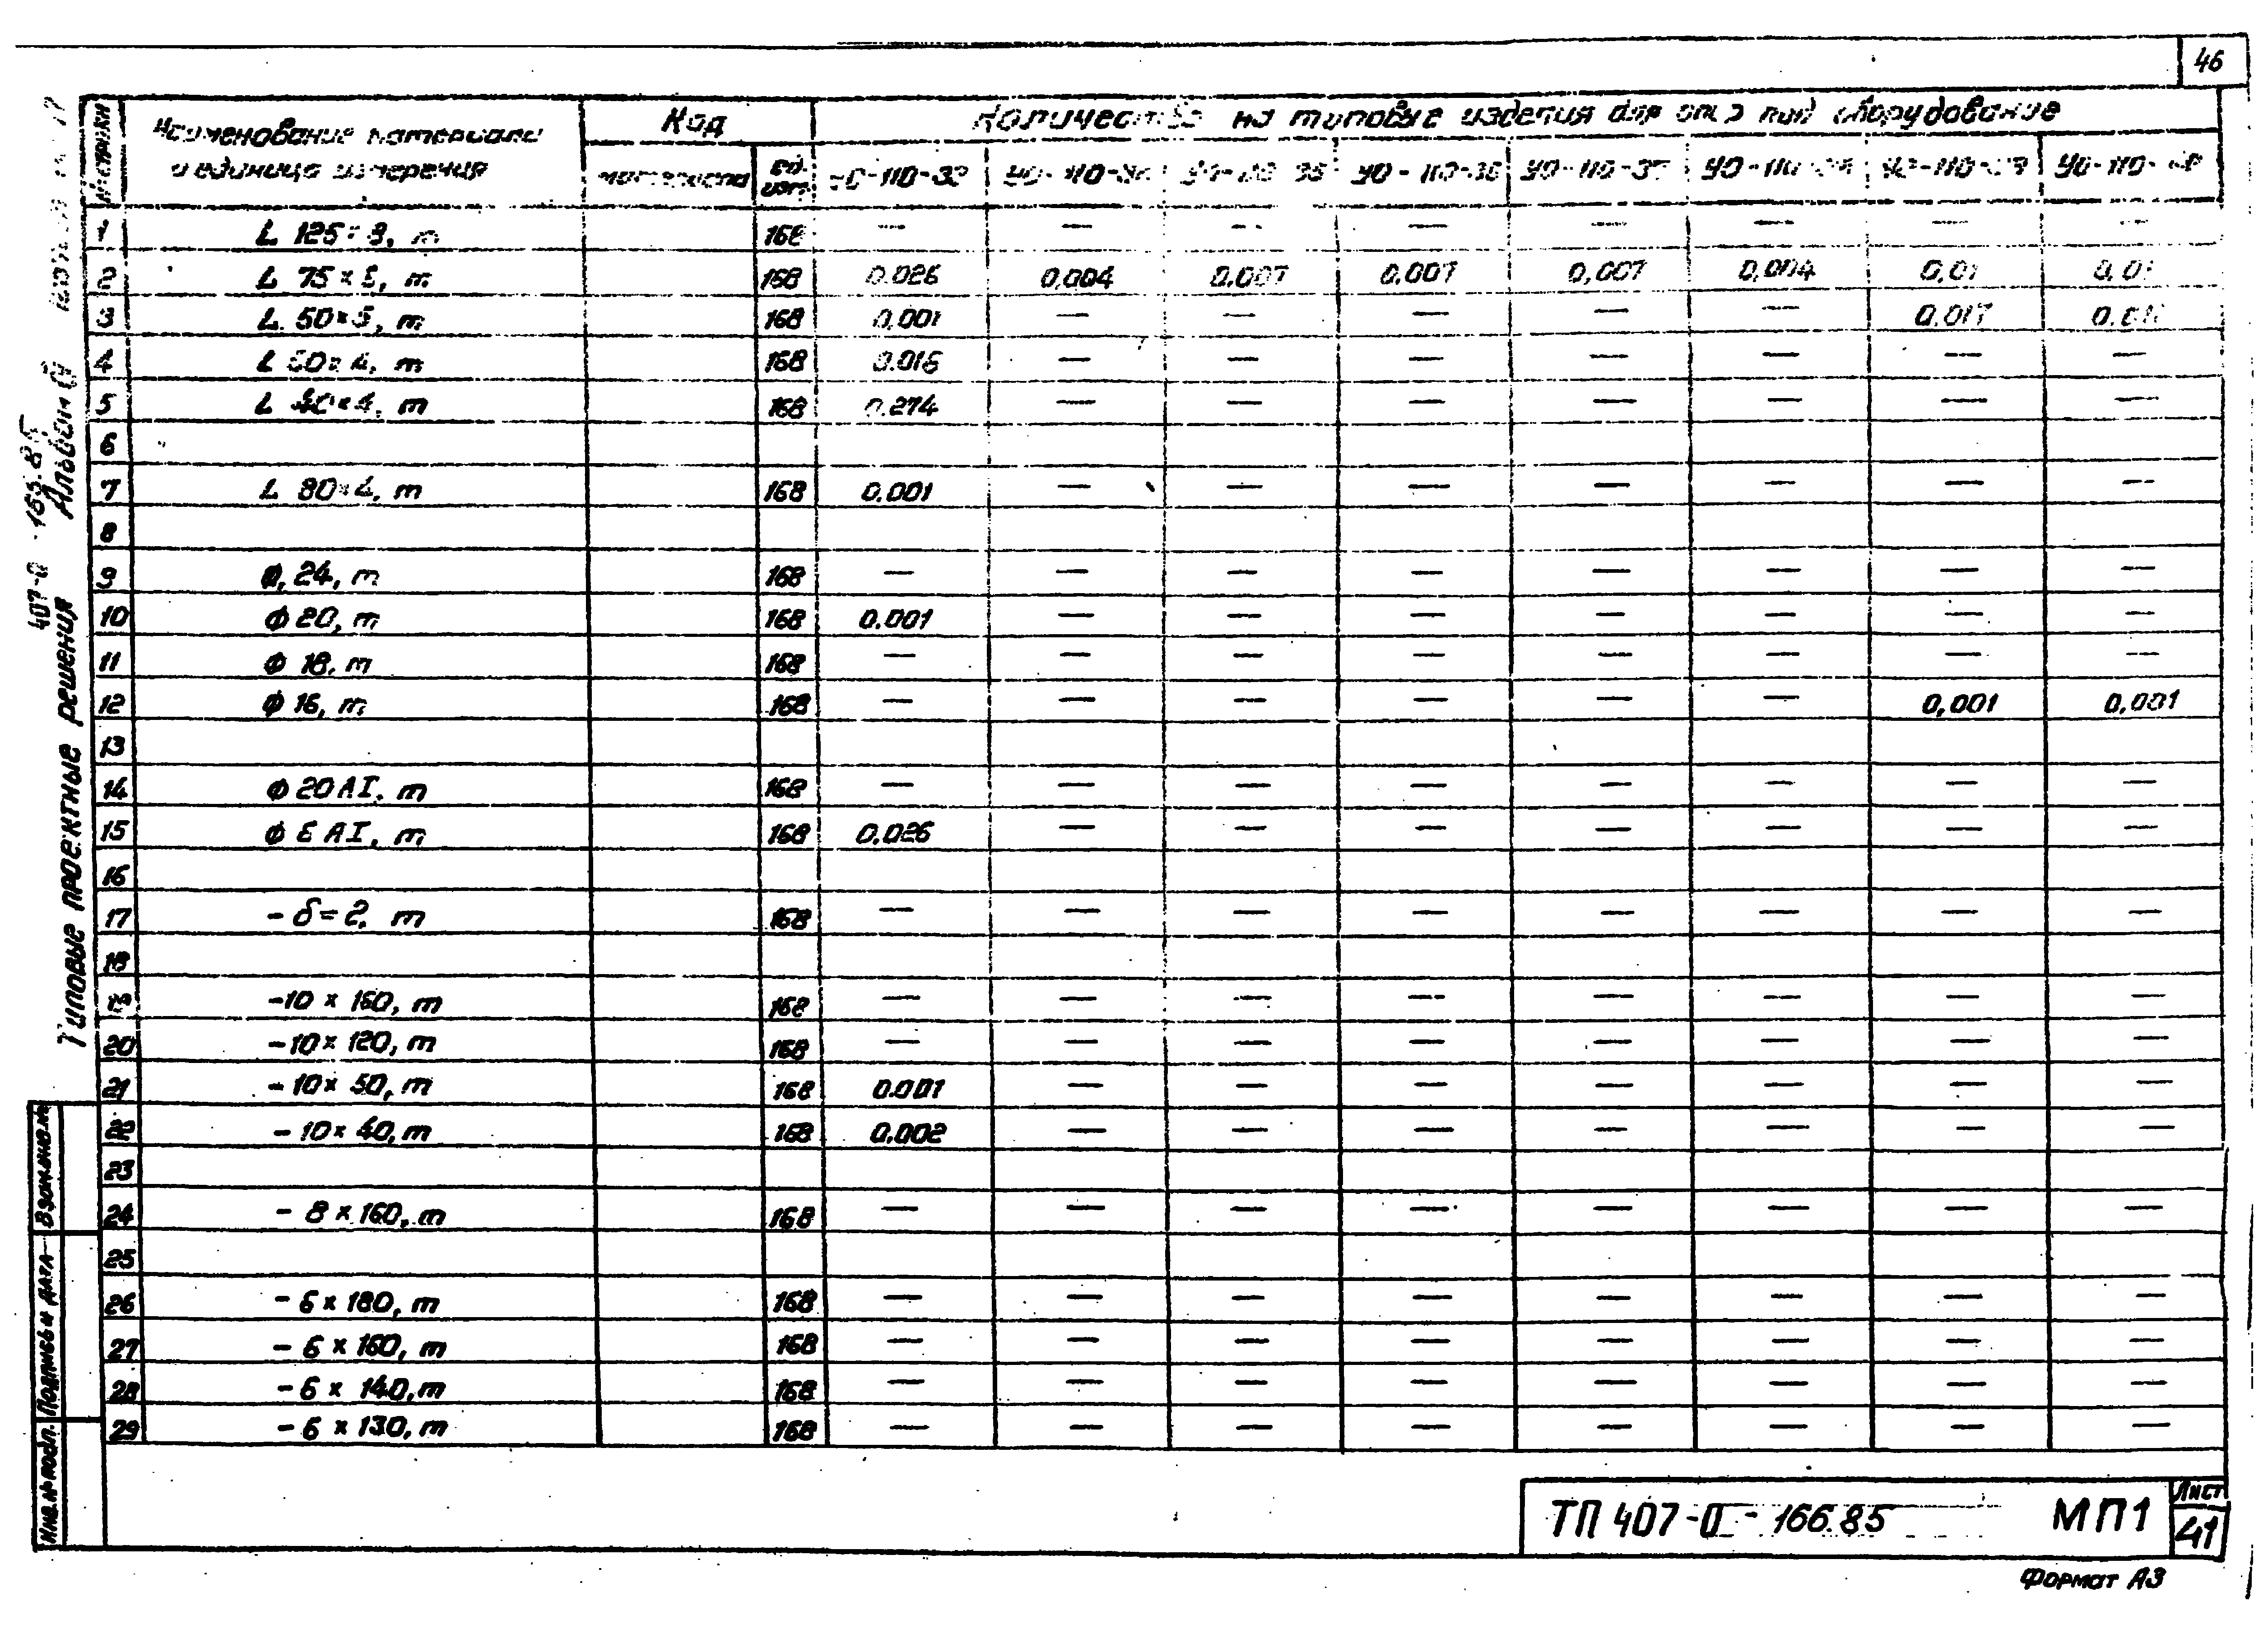 46
Наименование материала
и единица измерения
Код
Количество на типовые изделия для опор под оборудование
материала
Ед. изм.
УО-110-36
1 L 125×8, т 168 — — — — — — — —
2 L 75×5, т 168 0.026 0,004 0.007 0.007 0,007 0,004 0,01 0,01
3 L 50×5, т 168 0,001 — — — — — 0.017
4 168 0.016 — — — — — — —
5 L 40×4, т 168 0.274 — — — — — — —
6
7 L 80×4, т 168 0.001 — — — — — — —
8
9 ф, 24, т 168 — — — — — — — —
10 ф 20, т 168 0.001 — — — — — — —
11 ф 18, т 168 — — — — — — — —
12 ф 16, т 168 — — — — — — 0,001 0,001
13
14 ф 20 АI, т 168 — — — — — — — —
15 168 0.026 — — — — — — —
16
17 - δ=2, т 168 — — — — — — — —
18
19 -10 × 160, т 168 — — — — — — — —
20 -10 × 120, т 168 — — — — — — — —
21 - 10 × 50, т 168 0.001 — — — — — — —
22 - 10 × 40, т 168 0.002 — — — — — — —
23
24 - 8 × 160, т 168 — — — — — — — —
25
26 - 6 × 180, т 168 — — — — — — — —
27 - 6 × 160, т 168 — — — — — — — —
28 - 6 × 140, т 168 — — — — — — — —
29 - 6 × 130, т 168 — — — — — — — —
407-0-166.85
Альбом
Типовые проектные решения
Взам.инв.№
Подпись и дата
Инв.№ подл.
ТП 407-0-166.85 МП1
Лист
41
Формат А3